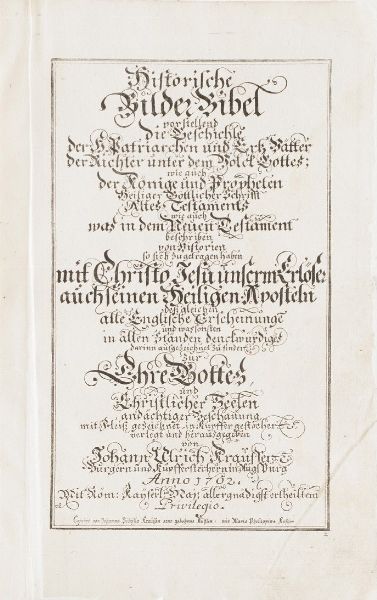 Historische
Bilder Bibel
vorstellend
Die Geschichte
der H. Patriarchen und Ertz Vätter
der Richter unter dem Volck Gottes;
wie auch
der Könige und Propheten
Heiliger Göttlicher Schrifft
Altes Testaments
wie auch
was in dem Neuen Testament
beschriben
von Historien
so sich zugetragen haben
mit Christo Jesu unserm Erlöser
auch seinen Heiligen Aposteln
deßgleichen
alle Englische Erscheinunge
und was sonsten
in allen Ständen denckwürdiges
darinn aufgezeichnet zu finden
zur
Ehre Gottes,
und
Christlicher Seelen
andächtiger Beschauung
mit Fleiß gezeichnet in Kupffer gestochen
verlegt und herausgegeben
von
Johann Ulrich Kraußen
Burgern und Kupfferstechern in Augsburg
Anno 1702.
Mit Röm: Kayserl. May: allergnädigst ertheiltem
Privilegio.